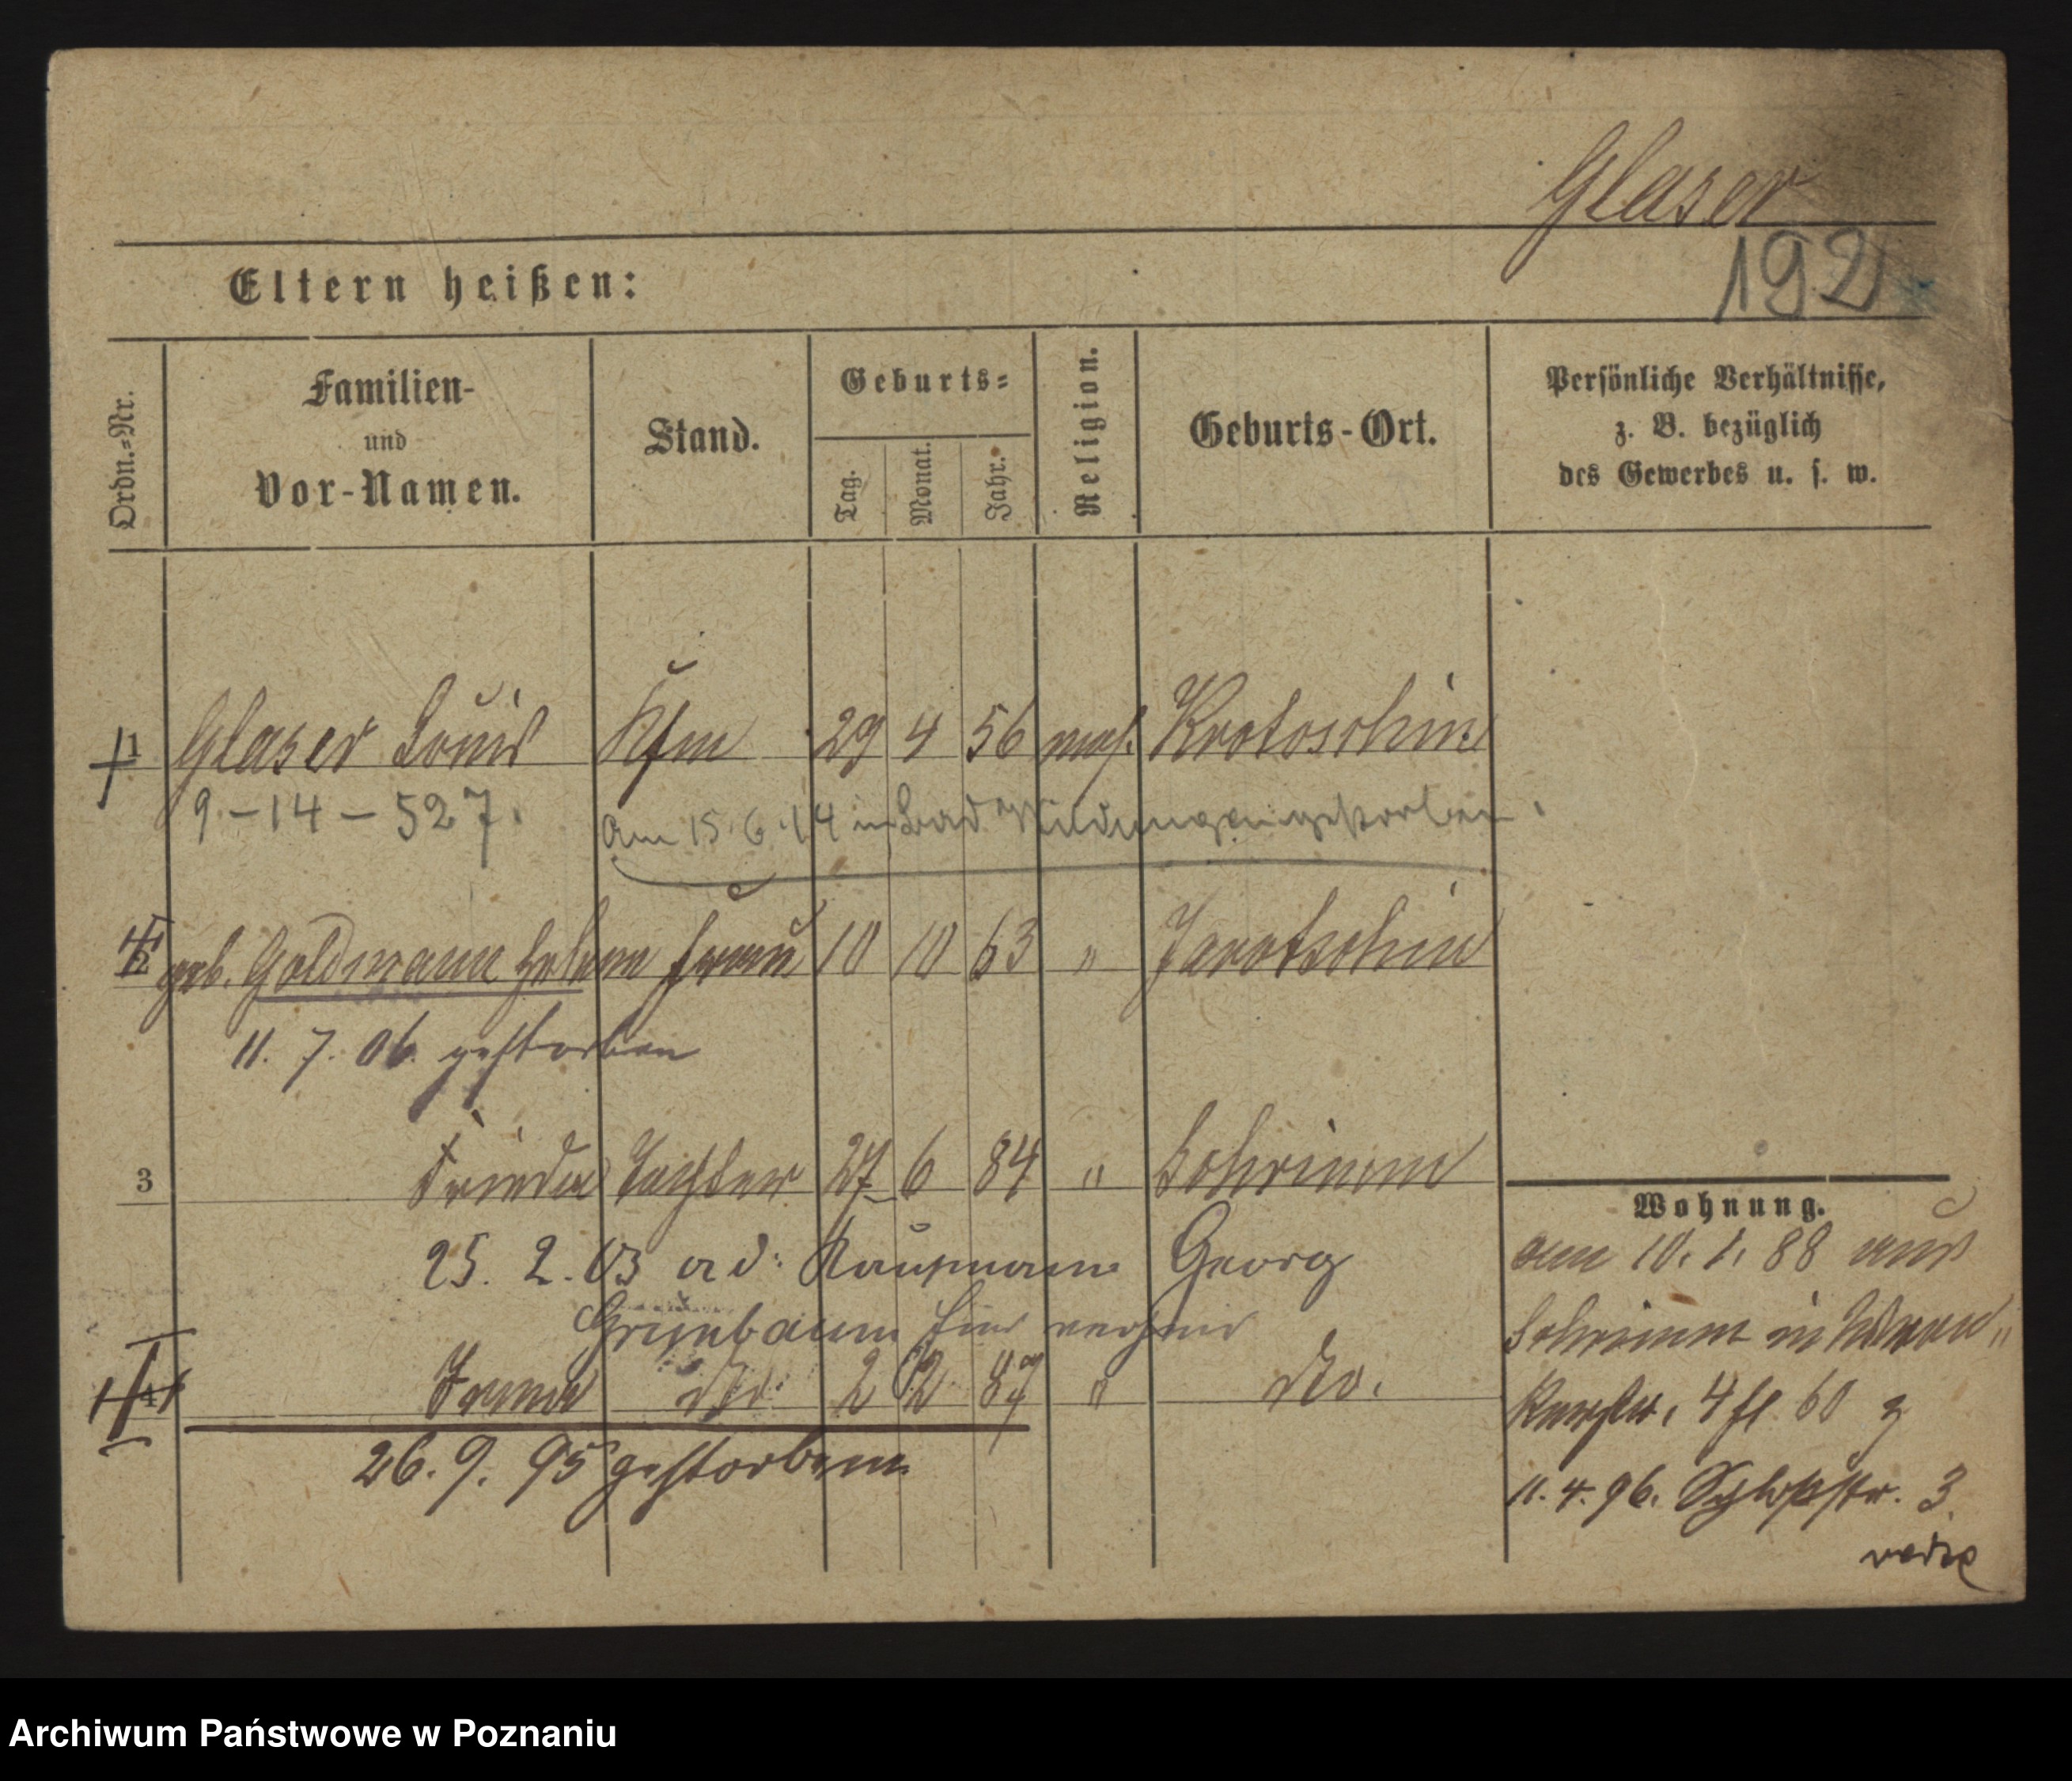 Glaser
192
Eltern heißen:
Ordn.=Nr.
Familien-
und
Vor-Namen.
Stand.
Geburts=
Tag.
Monat.
Jahr.
Religion.
Geburts-Ort.
Persönliche Verhältnisse,
z. B. bezüglich
des Gewerbes u. s. w.
1 Glaser Louis Kfm 29 4 56 mos. Krotoschin
9-14-527.
am 15.6.14 in Bad Wildungen gestorben.
2 geb. Goldmann Helene Frau 10 10 63 " Jarotschin
11. 7. 06. gestorben
3 Frieda Tochter 27 6 84 " Schrimm
25. 2. 03 a d. Kaufmann Georg
Grünbaum hier verh
4 do. 2 12 87 " do.
26. 9. 95 gestorben
Wohnung.
am 10. 1. 88 aus
Schrimm in
4 fl. 60
11. 4. 96. Schloßstr. 3.